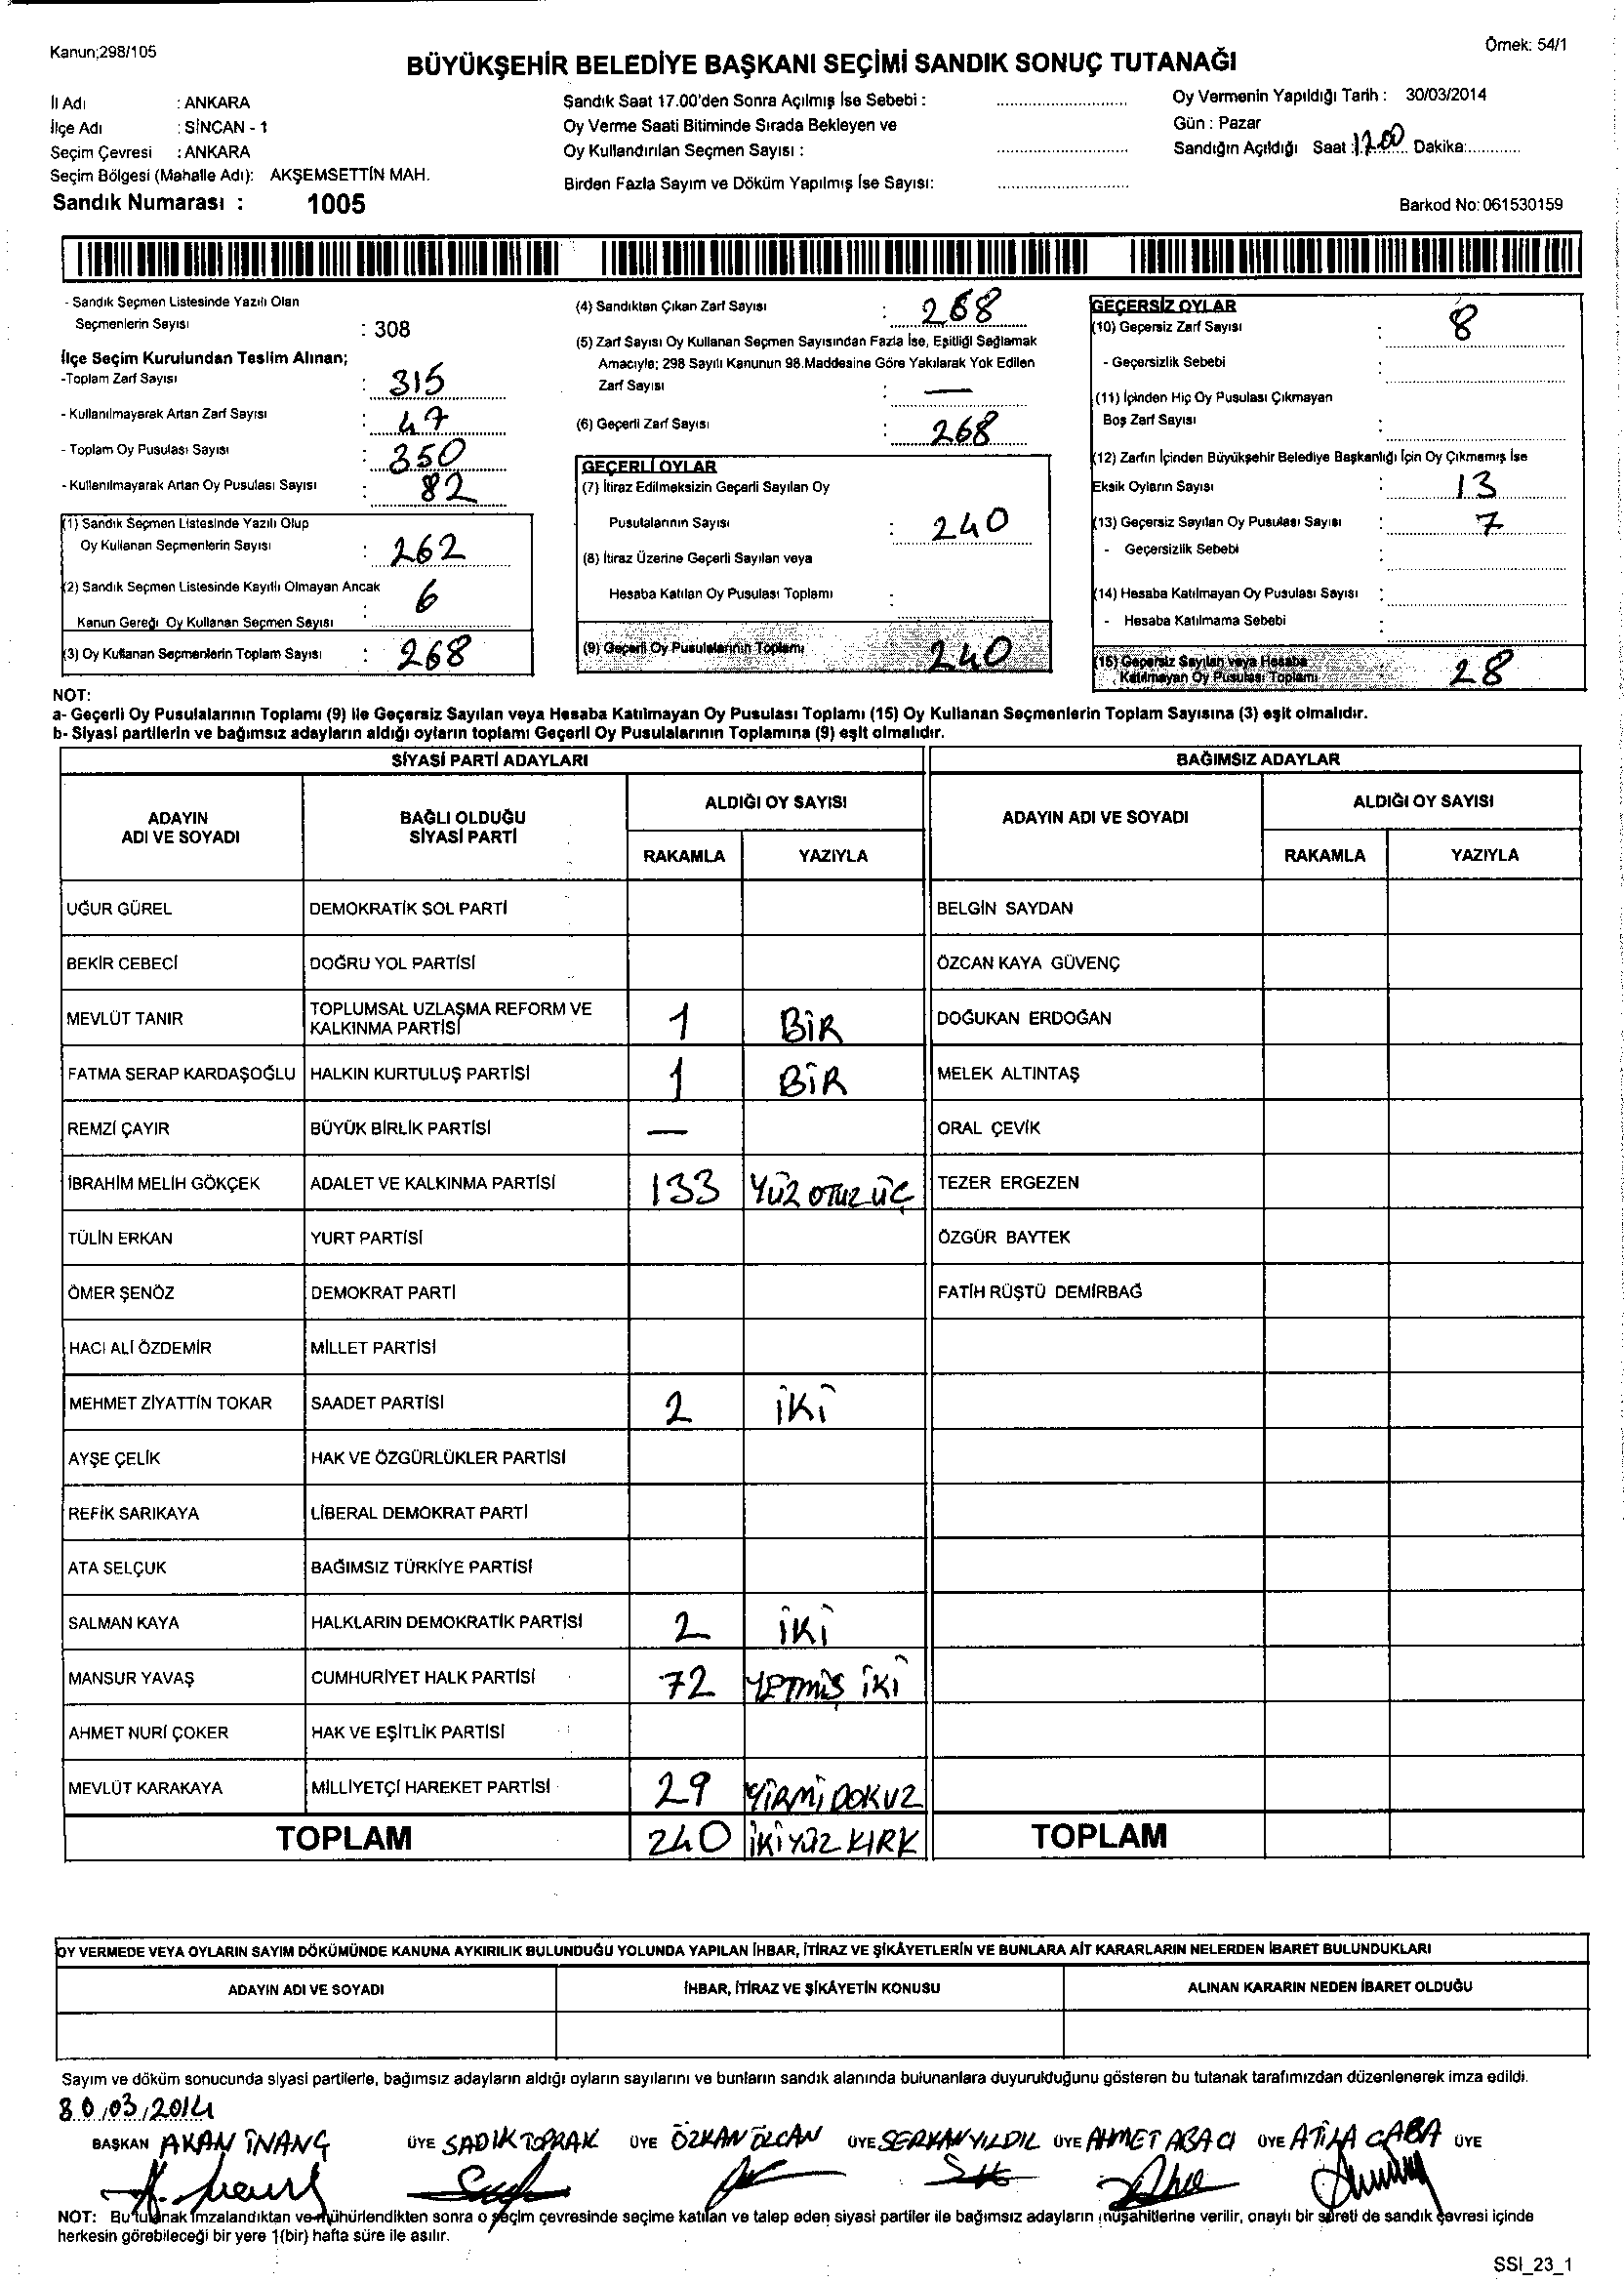 Kanun;298/105
Örnek: 54/1
BÜYÜKŞEHİR BELEDİYE BAŞKANI SEÇİMİ SANDIK SONUÇ TUTANAĞI
İl Adı : ANKARA
İlçe Adı : SİNCAN - 1
Seçim Çevresi : ANKARA
Seçim Bölgesi (Mahalle Adı): AKŞEMSETTİN MAH.
Sandık Numarası : 1005
Sandık Saat 17.00'den Sonra Açılmış İse Sebebi :
Oy Verme Saati Bitiminde Sırada Bekleyen ve
Oy Kullandırılan Seçmen Sayısı :
Birden Fazla Sayım ve Döküm Yapılmış İse Sayısı:
Oy Vermenin Yapıldığı Tarih : 30/03/2014
Gün : Pazar
Sandığın Açıldığı Saat : 17.00 Dakika:
Barkod No: 061530159
- Sandık Seçmen Listesinde Yazılı Olan
Seçmenlerin Sayısı : 308
İlçe Seçim Kurulundan Teslim Alınan;
-Toplam Zarf Sayısı : 315
- Kullanılmayarak Artan Zarf Sayısı : 47
- Toplam Oy Pusulası Sayısı : 350
- Kullanılmayarak Artan Oy Pusulası Sayısı : 82
(1) Sandık Seçmen Listesinde Yazılı Olup
Oy Kullanan Seçmenlerin Sayısı : 262
(2) Sandık Seçmen Listesinde Kayıtlı Olmayan Ancak
Kanun Gereği Oy Kullanan Seçmen Sayısı : 6
(3) Oy Kullanan Seçmenlerin Toplam Sayısı : 268
(4) Sandıktan Çıkan Zarf Sayısı : 268
(5) Zarf Sayısı Oy Kullanan Seçmen Sayısından Fazla İse, Eşitliği Sağlamak
Amacıyla; 298 Sayılı Kanunun 98.Maddesine Göre Yakılarak Yok Edilen
Zarf Sayısı : —
(6) Geçerli Zarf Sayısı : 268
GEÇERLİ OYLAR
(7) İtiraz Edilmeksizin Geçerli Sayılan Oy
Pusulalarının Sayısı : 240
(8) İtiraz Üzerine Geçerli Sayılan veya
Hesaba Katılan Oy Pusulası Toplamı :
(9) Geçerli Oy Pusulalarının Toplamı 240
GEÇERSİZ OYLAR
(10) Geçersiz Zarf Sayısı : 8
- Geçersizlik Sebebi :
(11) İçinden Hiç Oy Pusulası Çıkmayan
Boş Zarf Sayısı :
(12) Zarfın İçinden Büyükşehir Belediye Başkanlığı İçin Oy Çıkmamış İse
Eksik Oyların Sayısı : 13
(13) Geçersiz Sayılan Oy Pusulası Sayısı : 7
- Geçersizlik Sebebi :
(14) Hesaba Katılmayan Oy Pusulası Sayısı :
- Hesaba Katılmama Sebebi :
(15) Geçersiz Sayılan veya Hesaba
Katılmayan Oy Pusulası Toplamı 28
NOT:
a- Geçerli Oy Pusulalarının Toplamı (9) ile Geçersiz Sayılan veya Hesaba Katılmayan Oy Pusulası Toplamı (15) Oy Kullanan Seçmenlerin Toplam Sayısına (3) eşit olmalıdır.
b- Siyasi partilerin ve bağımsız adayların aldığı oyların toplamı Geçerli Oy Pusulalarının Toplamına (9) eşit olmalıdır.
SİYASİ PARTİ ADAYLARI BAĞIMSIZ ADAYLAR
ADAYIN ADI VE SOYADI BAĞLI OLDUĞU SİYASİ PARTİ ALDIĞI OY SAYISI ADAYIN ADI VE SOYADI ALDIĞI OY SAYISI
RAKAMLA YAZIYLA RAKAMLA YAZIYLA
UĞUR GÜREL DEMOKRATİK SOL PARTİ BELGİN SAYDAN
BEKİR CEBECİ DOĞRU YOL PARTİSİ ÖZCAN KAYA GÜVENÇ
MEVLÜT TANIR TOPLUMSAL UZLAŞMA REFORM VE KALKINMA PARTİSİ 1 BİR DOĞUKAN ERDOĞAN
FATMA SERAP KARDAŞOĞLU HALKIN KURTULUŞ PARTİSİ 1 BİR MELEK ALTINTAŞ
REMZİ ÇAYIR BÜYÜK BİRLİK PARTİSİ — ORAL ÇEVİK
İBRAHİM MELİH GÖKÇEK ADALET VE KALKINMA PARTİSİ 133 YÜZ OTUZ ÜÇ TEZER ERGEZEN
TÜLİN ERKAN YURT PARTİSİ ÖZGÜR BAYTEK
ÖMER ŞENÖZ DEMOKRAT PARTİ FATİH RÜŞTÜ DEMİRBAĞ
HACI ALİ ÖZDEMİR MİLLET PARTİSİ
MEHMET ZİYATTİN TOKAR SAADET PARTİSİ 2 İKİ
AYŞE ÇELİK HAK VE ÖZGÜRLÜKLER PARTİSİ
REFİK SARIKAYA LİBERAL DEMOKRAT PARTİ
ATA SELÇUK BAĞIMSIZ TÜRKİYE PARTİSİ
SALMAN KAYA HALKLARIN DEMOKRATİK PARTİSİ 2 İKİ
MANSUR YAVAŞ CUMHURİYET HALK PARTİSİ 72 YETMİŞ İKİ
AHMET NURİ ÇOKER HAK VE EŞİTLİK PARTİSİ
MEVLÜT KARAKAYA MİLLİYETÇİ HAREKET PARTİSİ 29 YİRMİ DOKUZ
TOPLAM 240 İKİ YÜZ KIRK TOPLAM
OY VERMEDE VEYA OYLARIN SAYIM DÖKÜMÜNDE KANUNA AYKIRILIK BULUNDUĞU YOLUNDA YAPILAN İHBAR, İTİRAZ VE ŞİKÂYETLERİN VE BUNLARA AİT KARARLARIN NELERDEN İBARET BULUNDUKLARI
ADAYIN ADI VE SOYADI İHBAR, İTİRAZ VE ŞİKÂYETİN KONUSU ALINAN KARARIN NEDEN İBARET OLDUĞU
Sayım ve döküm sonucunda siyasi partilerle, bağımsız adayların aldığı oyların sayılarını ve bunların sandık alanında bulunanlara duyurulduğunu gösteren bu tutanak tarafımızdan düzenlenerek imza edildi.
30/03/2014
BAŞKAN AKAN İNANÇ ÜYE SADIK TOPRAK ÜYE ÖZKAN ÖLCAN ÜYE SERKAN YILDIL ÜYE AHMET ABACI ÜYE ATİLA ÇABA ÜYE
NOT: Bu tutanak imzalandıktan ve mühürlendikten sonra o seçim çevresinde seçime katılan ve talep eden siyasi partiler ile bağımsız adayların müşahitlerine verilir, onaylı bir sureti de sandık çevresi içinde
herkesin görebileceği bir yere 1(bir) hafta süre ile asılır.
SSI_23_1